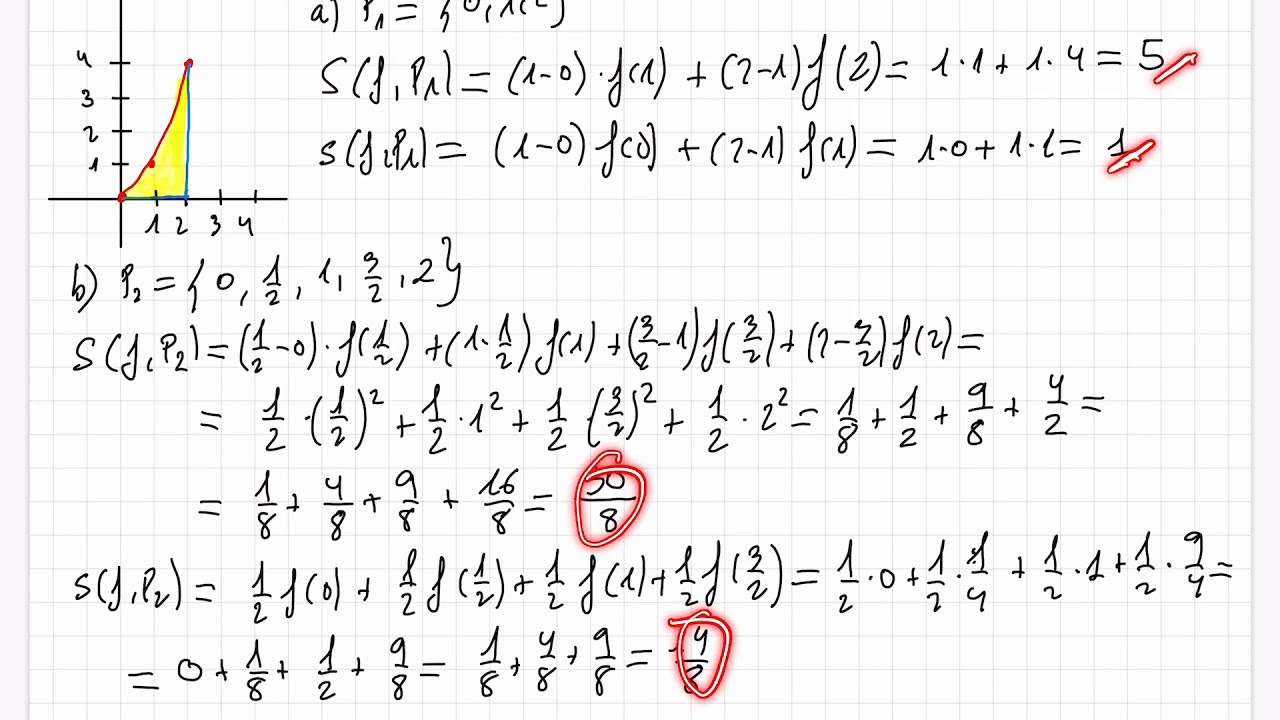 a) P₁ = {0, 1, 2}
S(f, P₁) = (1-0)·f(1) + (2-1)f(2) = 1·1 + 1·4 = 5
s(f, P₁) = (1-0) f(0) + (2-1) f(1) = 1·0 + 1·1 = 1
4
3
2
1
1 2 3 4
b) P₂ = {0, 1/2, 1, 3/2, 2}
S(f, P₂) = (1/2 - 0)·f(1/2) + (1·1/2) f(1) + (3/2 - 1) f(3/2) + (2 - 3/2) f(2) =
= 1/2 · (1/2)² + 1/2 · 1² + 1/2 (3/2)² + 1/2 · 2² = 1/8 + 1/2 + 9/8 + 4/2 =
= 1/8 + 4/8 + 9/8 + 16/8 = 30/8
s(f, P₂) = 1/2 f(0) + 1/2 f(1/2) + 1/2 f(1) + 1/2 f(3/2) = 1/2 · 0 + 1/2 · 1/4 + 1/2 · 1 + 1/2 · 9/4 =
= 0 + 1/8 + 1/2 + 9/8 = 1/8 + 4/8 + 9/8 = 14/8